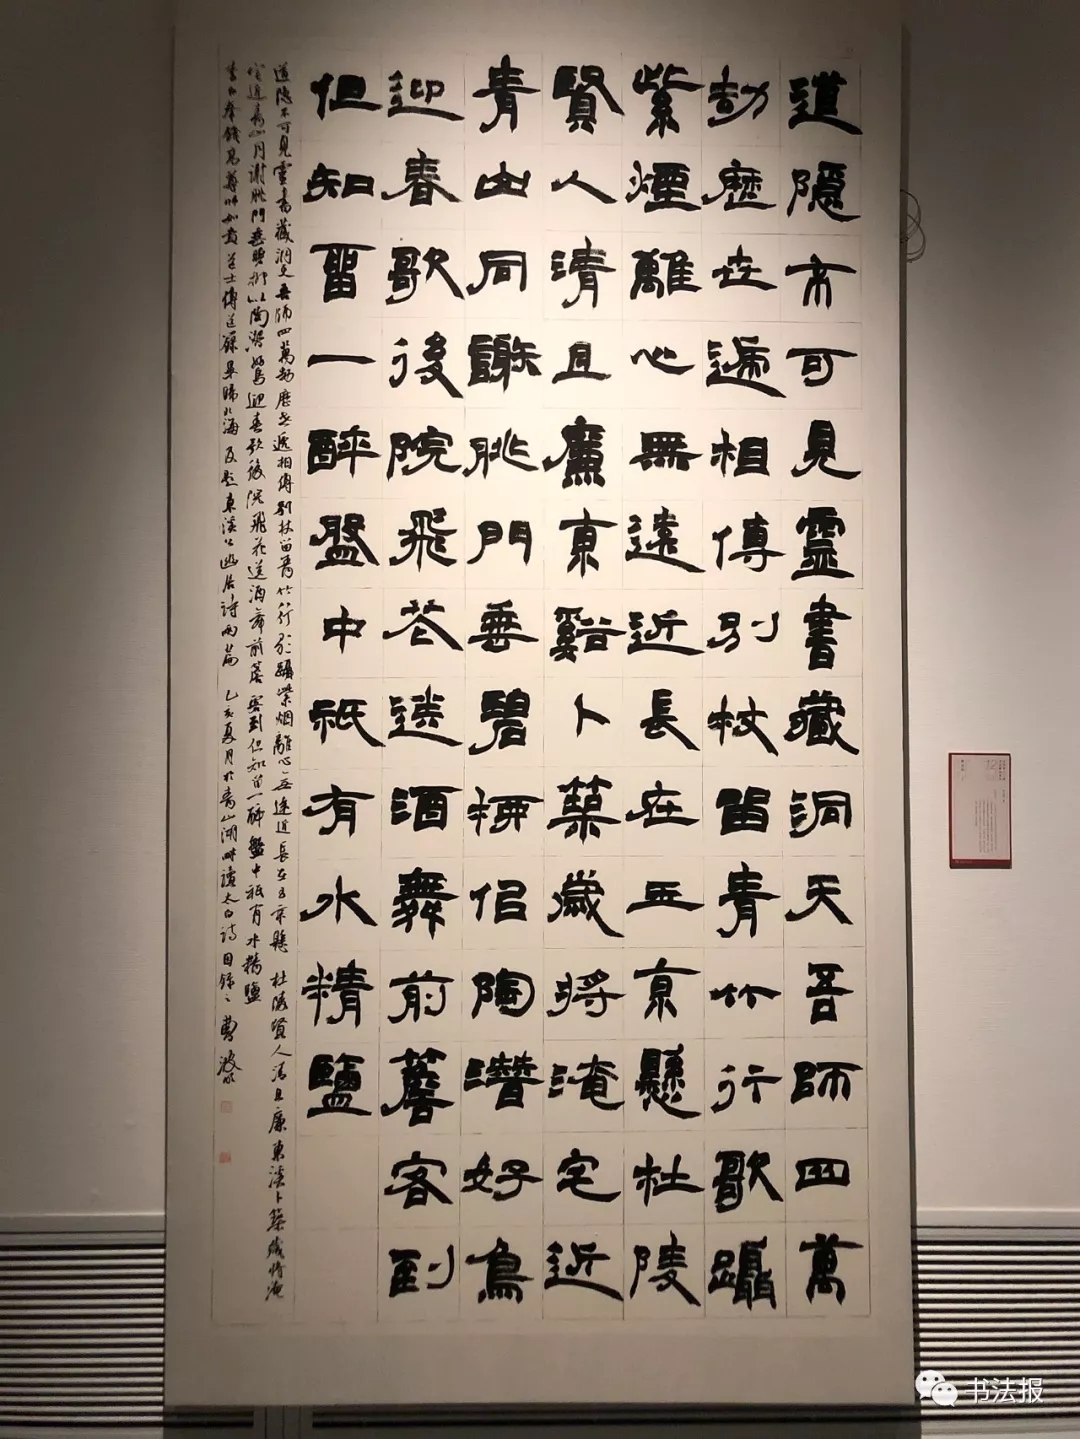 道隱不可見靈書藏洞天吾師四萬
劫歷世遞相傳別杖留青竹行歌躡
紫煙離心無遠近長在玉京懸杜陵
賢人清且廉東谿卜築歲將淹宅近
青山同謝脁門垂碧柳佀陶潛好鳥
迎春歌後院飛花送酒舞前簷客到
但知留一醉盤中祇有水精鹽
道隐不可見靈書藏洞天吾师四萬劫歷世遞相傳别杖留青竹行歌躡紫烟離心無遠近長在玉京懸 杜陵賢人清且廉東溪卜築歲將淹
宅近青山同謝脁門垂碧柳似陶潜好鳥迎春歌後院飛花送酒舞前簷客到但知留一醉盤中祇有水精鹽
李白奉餞高尊師如貴道士傳道籙畢歸北海及題東溪公幽居詩兩篇 己亥夏月於青山湖畔讀太白詩因録之 曹波
书法报